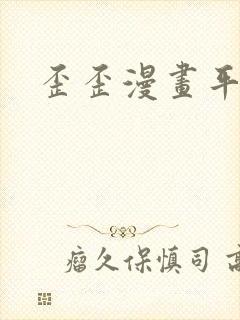 歪歪漫畫平
瘤久保慎司 高